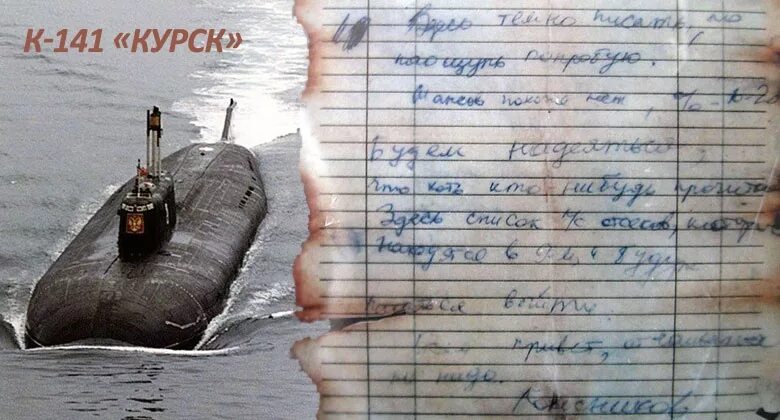 К-141 «КУРСК»
Здесь темно писать, но
наощупь попробую.
Шансов похоже нет, % 10-20
Будем надеяться,
что хоть кто нибудь прочита
Здесь список л/с отсеков, которые
находятся в 9-м и
выйти.
привет, отчаиваться
не надо.
Колесников